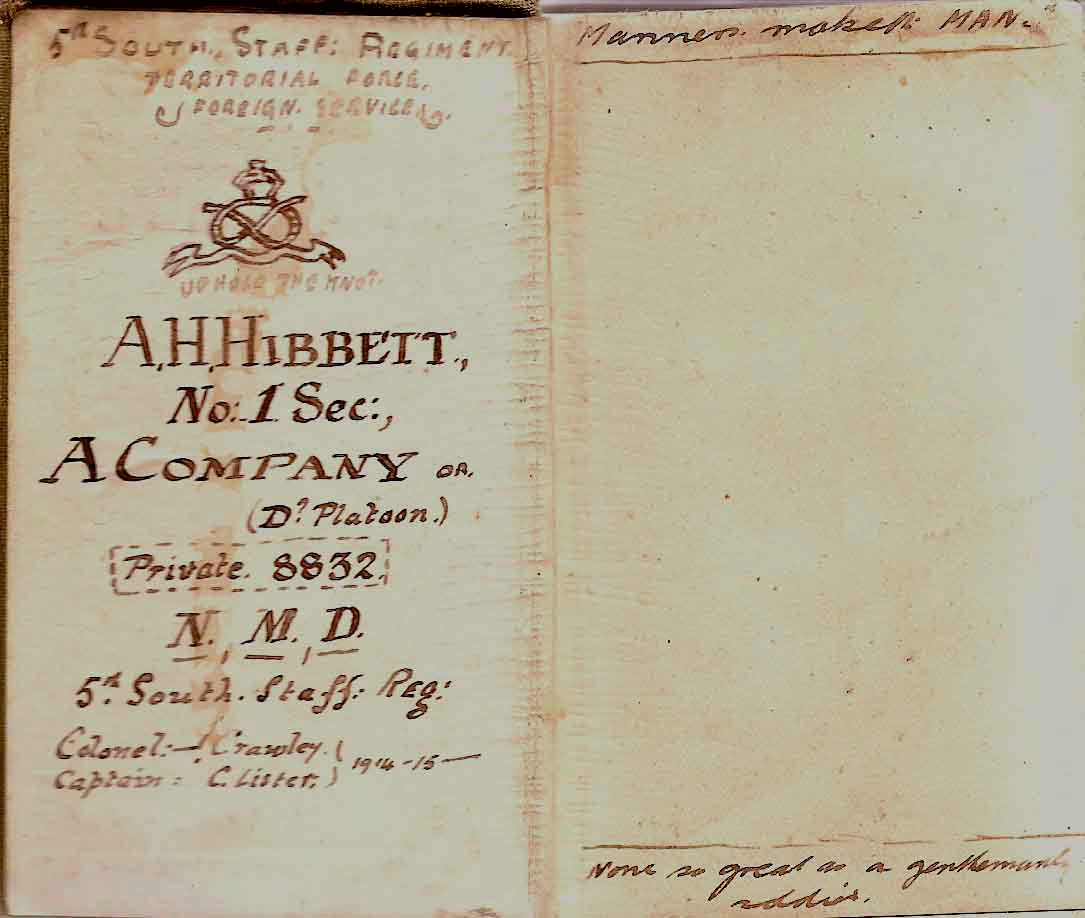 5th South. Staff: Regiment
Territorial Force.
Foreign. Service.
Uphold The Knot.
A.H.Hibbett.,
No:.1 Sec:.,
A Company or.
(D? Platoon.)
Private. 8832.
N., M., D.
5th South. Staff: Reg:
Colonel:— Crawley. (
Captain: C. Lister. ) 1914-15—
Manners. maketh MAN.
None so great as a gentlemanly